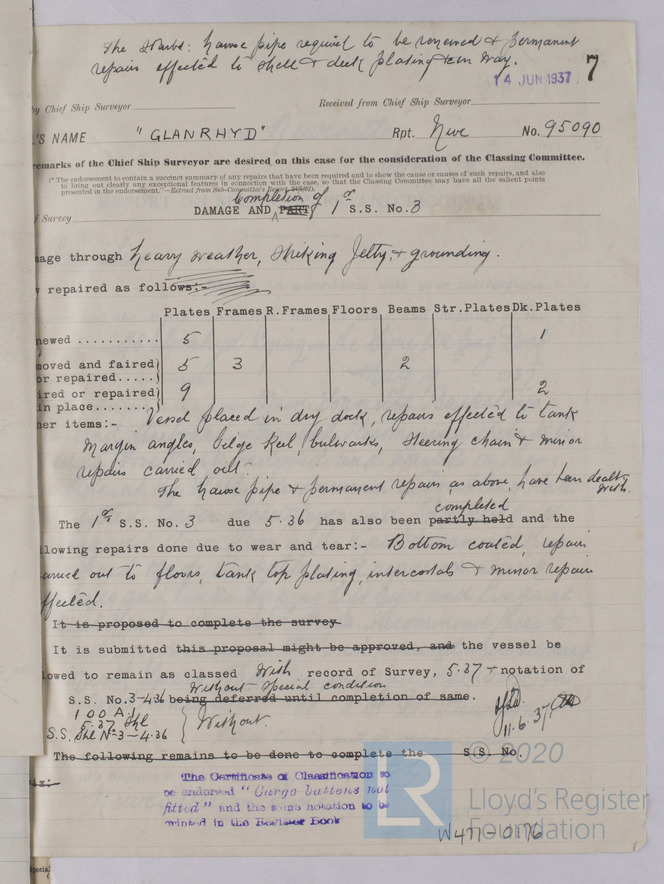 The Starbd: hawse pipe required to be renewed & permanent
repairs effected to shell & deck plating in way.
14 JUN 1937 7
by Chief Ship Surveyor Received from Chief Ship Surveyor
'S NAME "GLANRHYD" Rpt. Nwc No. 95090
remarks of the Chief Ship Surveyor are desired on this case for the consideration of the Classing Committee.
(* The endorsement to contain a succinct summary of any repairs that have been required and to show the cause or causes of such repairs, and also
to bring out clearly any exceptional features in connection with the case, so that the Classing Committee may have all the salient points
presented in the endorsement."—Extract from Sub-Committee's Report
completion of
f Survey DAMAGE AND PART 1st S.S. No. 3
age through heavy weather, striking Jetty, & grounding.
repaired as follows:-
Plates Frames R.Frames Floors Beams Str.Plates Dk.Plates
newed ........... 5 1
moved and faired) 5 3 2
or repaired.....)
ired or repaired) 9 2
in place........)
her items:- Vessel placed in dry dock, repairs effected to tank
margin angles, bilge keel, bulwarks, steering chain & minor
repairs carried out.
The hawse pipe & permanent repairs, as above, have been dealt
with.
completed
The 1st S.S. No. 3 due 5.36 has also been partly held and the
lowing repairs done due to wear and tear:- Bottom coated, repairs
arried out to floors, tank top plating, intercostals & minor repairs
ffected.
It is proposed to complete the survey
It is submitted this proposal might be approved, and the vessel be
lowed to remain as classed With record of Survey, 5.37 & notation of
Without special condition
S.S. No. 3-4.36 being deferred until completion of same.
100A1
5.37 Shl
S.S. Shl No 3-4.36 } Without
11.6.37
The following remains to be done to complete the S.S. No.
The Certificate of Classification to
be endorsed "Cargo battens not
fitted" and the same notation to be
printed in the Register Book
© 2020
LR
Lloyd's Register
Foundation
W477-0176
pecial